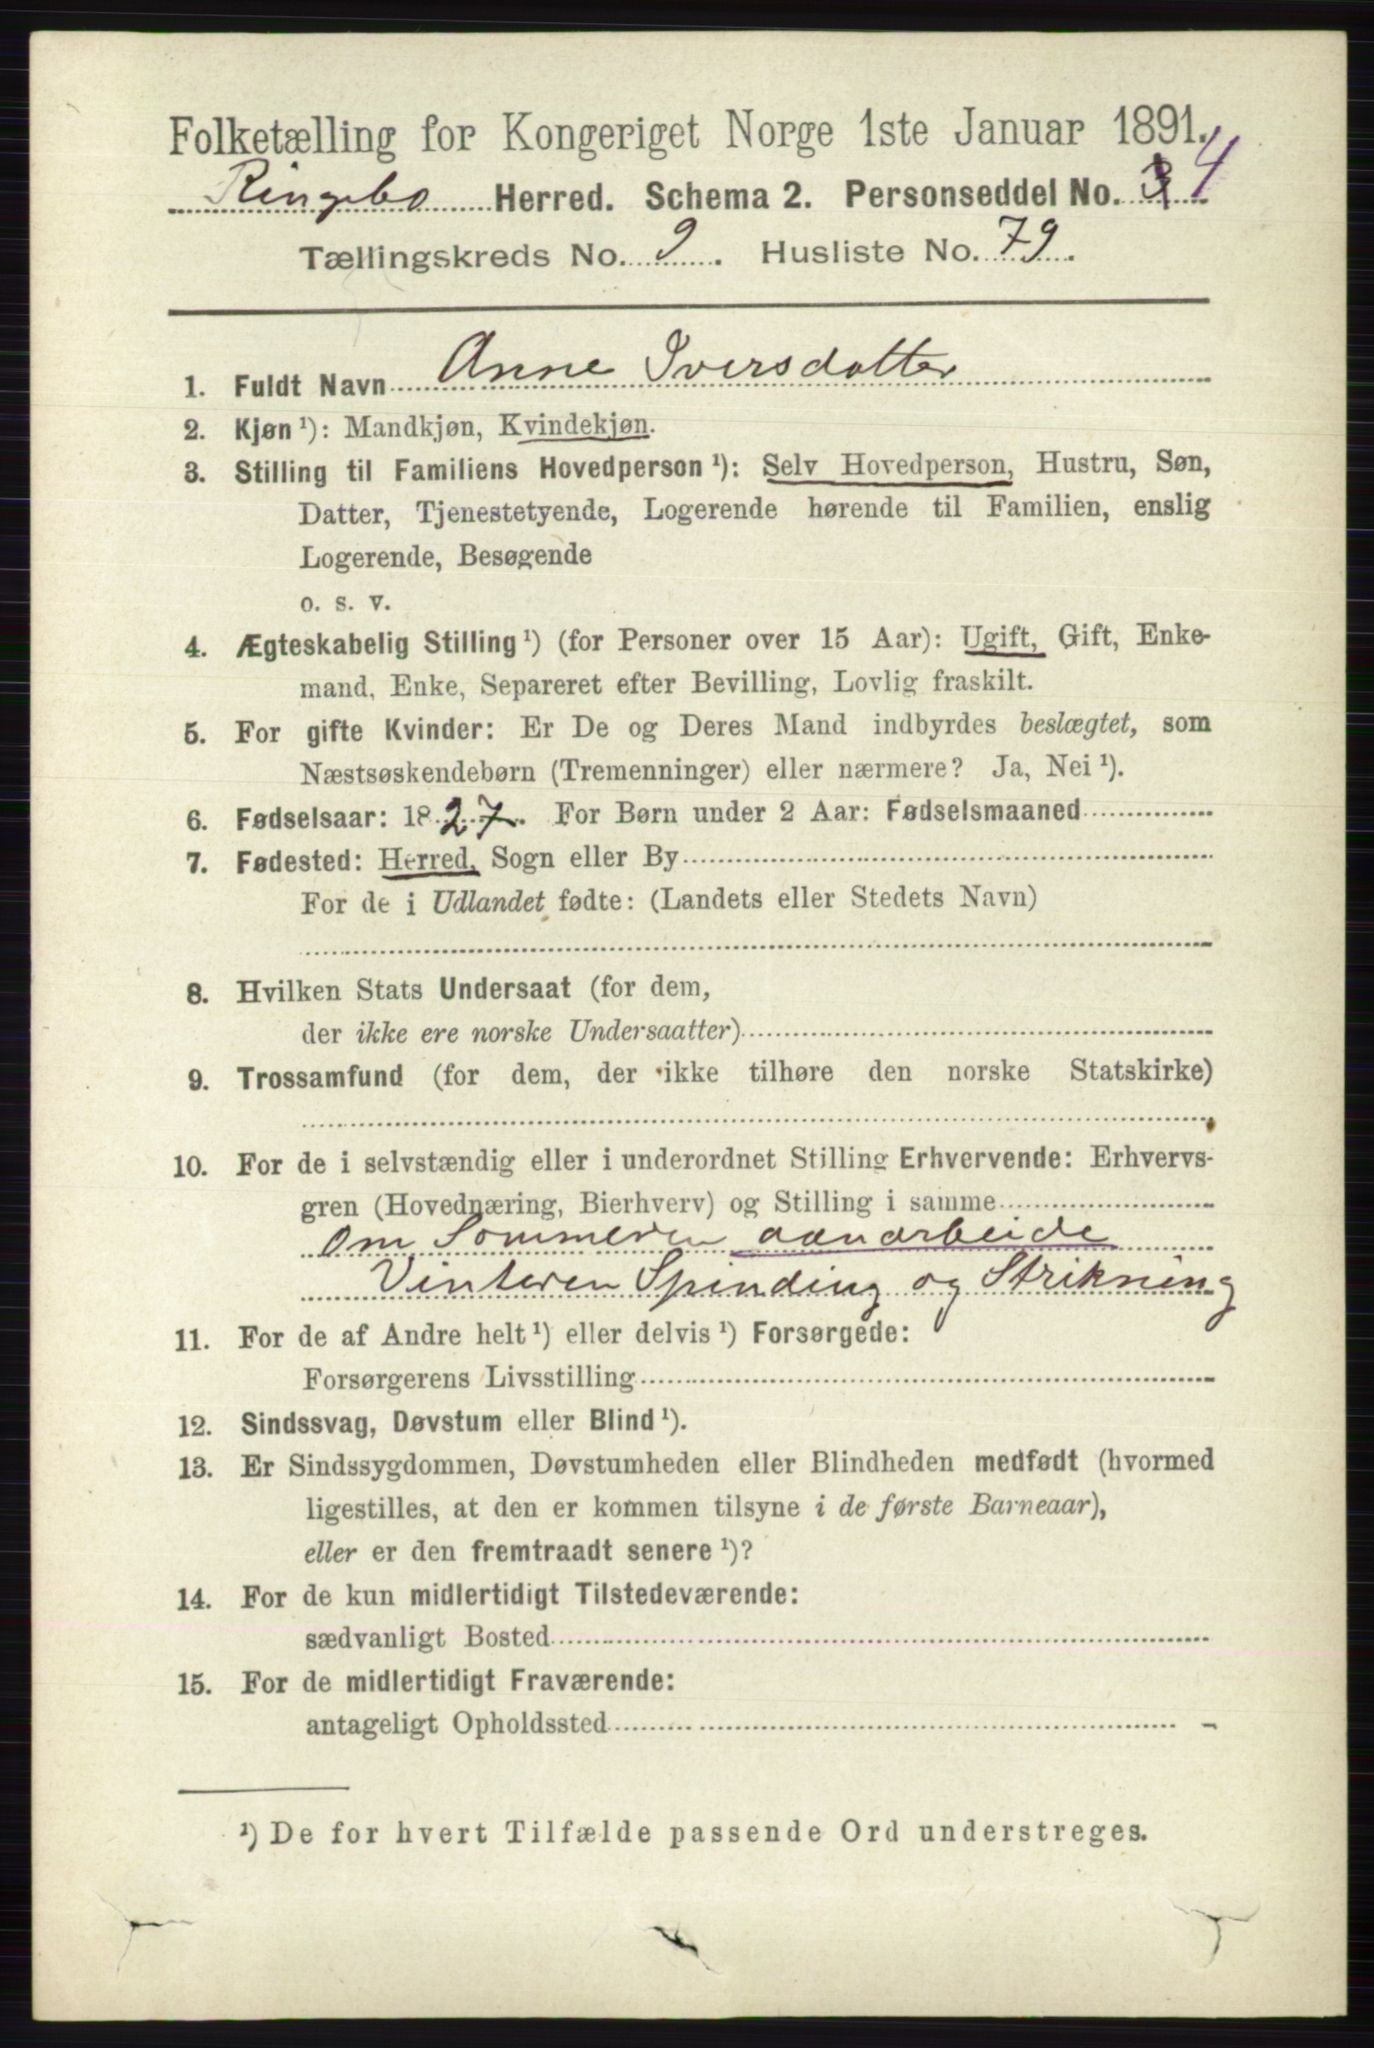 Folketælling for Kongeriget Norge 1ste Januar 1891.
Ringebo Herred. Schema 2. Personseddel No. 4
Tællingskreds No. 9. Husliste No. 79.
1. Fuldt Navn Anne Iversdatter
2. Kjøn ¹): Mandkjøn, Kvindekjøn.
3. Stilling til Familiens Hovedperson ¹): Selv Hovedperson, Hustru, Søn,
Datter, Tjenestetyende, Logerende hørende til Familien, enslig
Logerende, Besøgende
o. s. v.
4. Ægteskabelig Stilling ¹) (for Personer over 15 Aar): Ugift, Gift, Enke-
mand, Enke, Separeret efter Bevilling, Lovlig fraskilt.
5. For gifte Kvinder: Er De og Deres Mand indbyrdes beslægtet, som
Næstsøskendebørn (Tremenninger) eller nærmere? Ja, Nei ¹).
6. Fødselsaar: 1827. For Børn under 2 Aar: Fødselsmaaned
7. Fødested: Herred, Sogn eller By
For de i Udlandet fødte: (Landets eller Stedets Navn)
8. Hvilken Stats Undersaat (for dem,
der ikke ere norske Undersaatter)
9. Trossamfund (for dem, der ikke tilhøre den norske Statskirke)
10. For de i selvstændig eller i underordnet Stilling Erhvervende: Erhvervs-
gren (Hovednæring, Bierhverv) og Stilling i samme
om Sommeren aanarbeide
Vinteren Spinding og Strikning
11. For de af Andre helt ¹) eller delvis ¹) Forsørgede:
Forsørgerens Livsstilling
12. Sindssvag, Døvstum eller Blind ¹).
13. Er Sindssygdommen, Døvstumheden eller Blindheden medfødt (hvormed
ligestilles, at den er kommen tilsyne i de første Barneaar),
eller er den fremtraadt senere ¹)?
14. For de kun midlertidigt Tilstedeværende:
sædvanligt Bosted
15. For de midlertidigt Fraværende:
antageligt Opholdssted
¹) De for hvert Tilfælde passende Ord understreges.